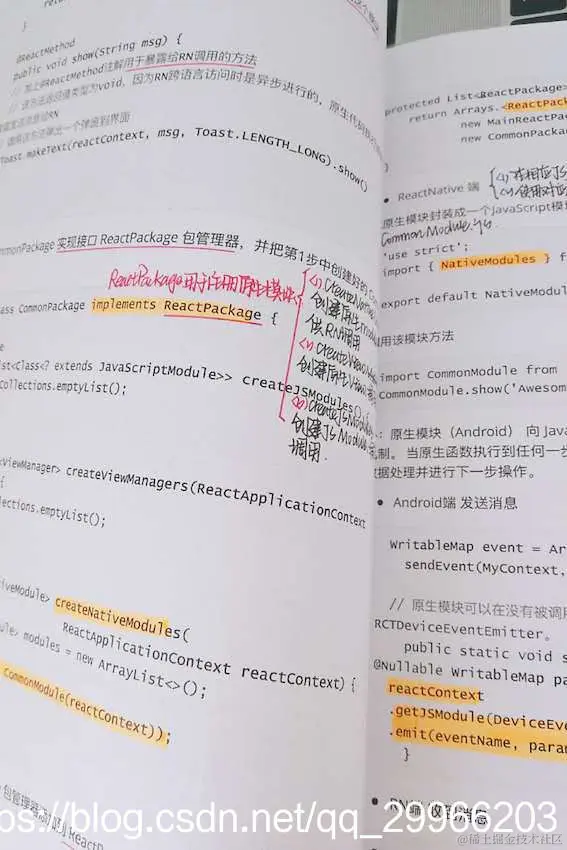 @ReactMethod
public void show(String msg) {
// 加上@ReactMethod注解用于暴露给RN调用的方法
// 该方法返回值类型为void，因为RN跨语言访问时是异步进行的，原生代码
Toast.makeText(reactContext, msg, Toast.LENGTH_LONG).show()
CommonPackage 实现接口 ReactPackage 包管理器，并把第1步中创建好的
ReactPackage用于注册原生模块
class CommonPackage implements ReactPackage {
供RN调用
List<Class<? extends JavaScriptModule>> createJSModules() {
Collections.emptyList();
(3) createJsModule
创建Js Module
调用.
ViewManager> createViewManagers(ReactApplicationContext
{
lections.emptyList();
tiveModule> createNativeModules(
ReactApplicationContext reactContext) {
ule> modules = new ArrayList<>();
CommonModule(reactContext));
包管理器添加到 ReactP
protected List<ReactPackage>
return Arrays.<ReactPack
new MainReactPacka
new CommonPacka
• ReactNative 端
原生模块封装成一个JavaScript模块
CommonModule.js
'use strict';
import { NativeModules } f
export default NativeModul
用该模块方法
import CommonModule from
CommonModule.show('Awesom
：原生模块（Android） 向 Java
制。当原生函数执行到任何一步
据处理并进行下一步操作。
• Android端 发送消息
WritableMap event = Ar
sendEvent(MyContext,
// 原生模块可以在没有被调用
RCTDeviceEventEmitter。
public static void s
@Nullable WritableMap pa
reactContext
.getJSModule(DeviceEve
.emit(eventName, param
}
• RN端 收到消息
ps://blog.csdn.net/qq_29966203
@稀土掘金技术社区